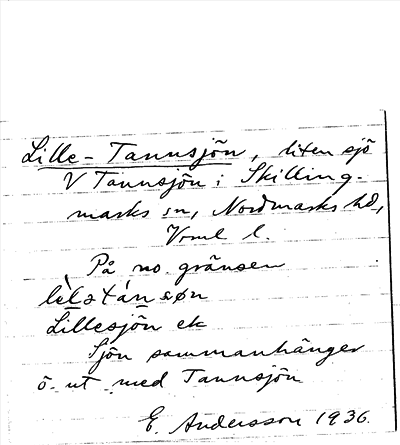 Lille-Tannsjön, liten sjö
V Tannsjön i Skilling-
marks sn, Nordmarks hd,
Vrml l.
På no. gränsen
lèlstánsøn
Lillesjön ek
Sjön sammanhänger
ö. ut med Tannsjön
E. Andersson 1936.